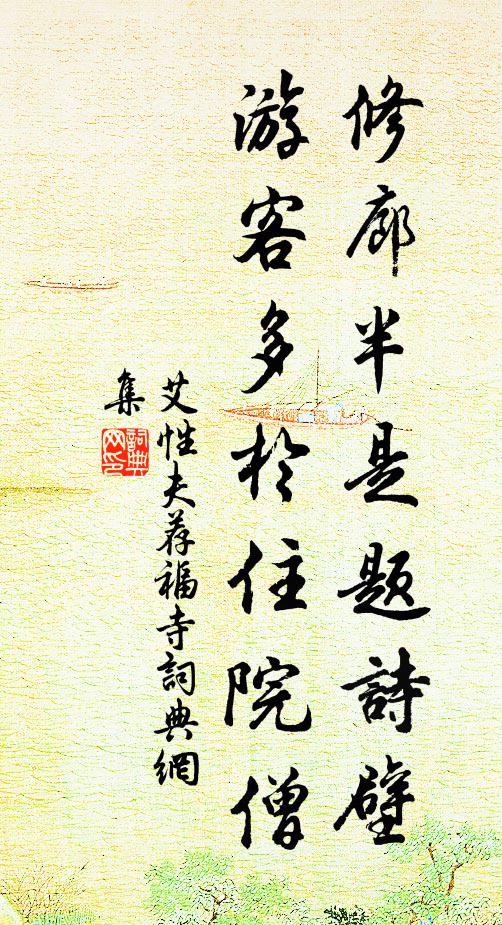 修廊半是题詩壁
游客多於住院僧
艾性夫荐福寺詞典網
集
詞典
网印